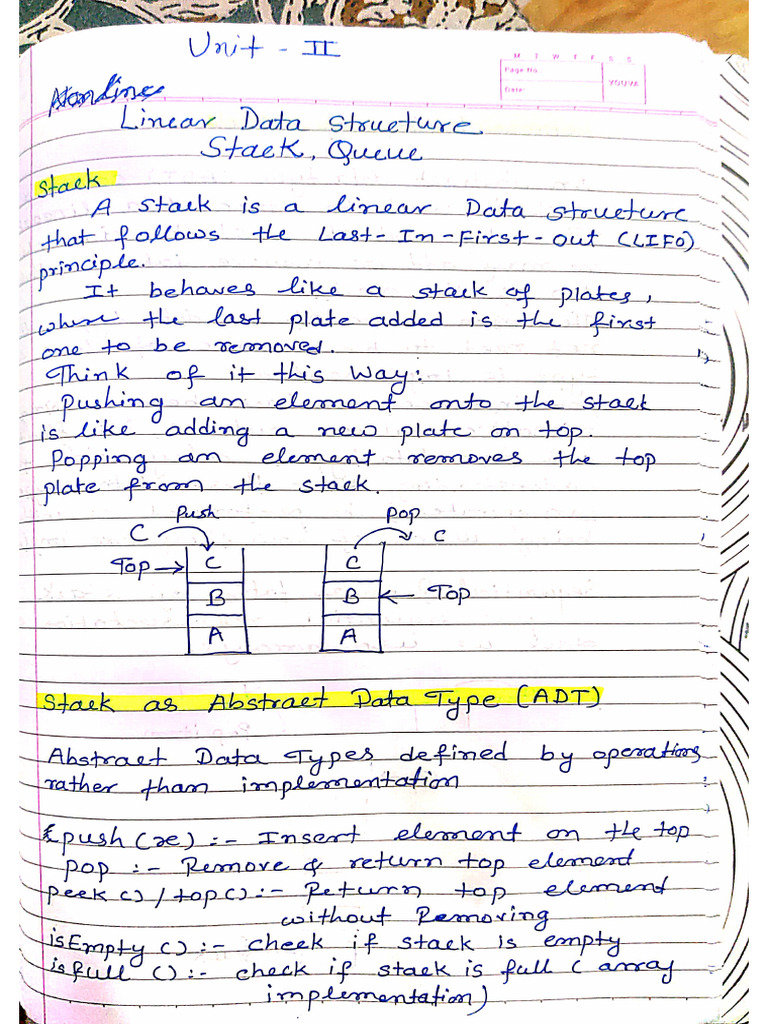 Unit - II
M T W T F S S
Page No.:
Date:
YOUVA
Linear Data Structure
Stack, Queue
Stack
A stack is a linear Data structure
that follows the Last-In-First-out (LIFO)
principle.
It behaves like a stack of plates,
where the last plate added is the first
one to be removed.
Think of it this way:
Pushing an element onto the stack
is like adding a new plate on top.
Popping an element removes the top
plate from the stack.
Push
Pop
C
C
Top →
C
C
B
B
← Top
A
A
Stack as Abstract Data Type (ADT)
Abstract Data Types defined by operations
rather than implementation
push (x) :- Insert element on the top
pop :- Remove & return top element
peek () / top () :- Return top element
without Removing
isEmpty () :- check if stack is empty
isfull () :- check if stack is full ( array
implementation)